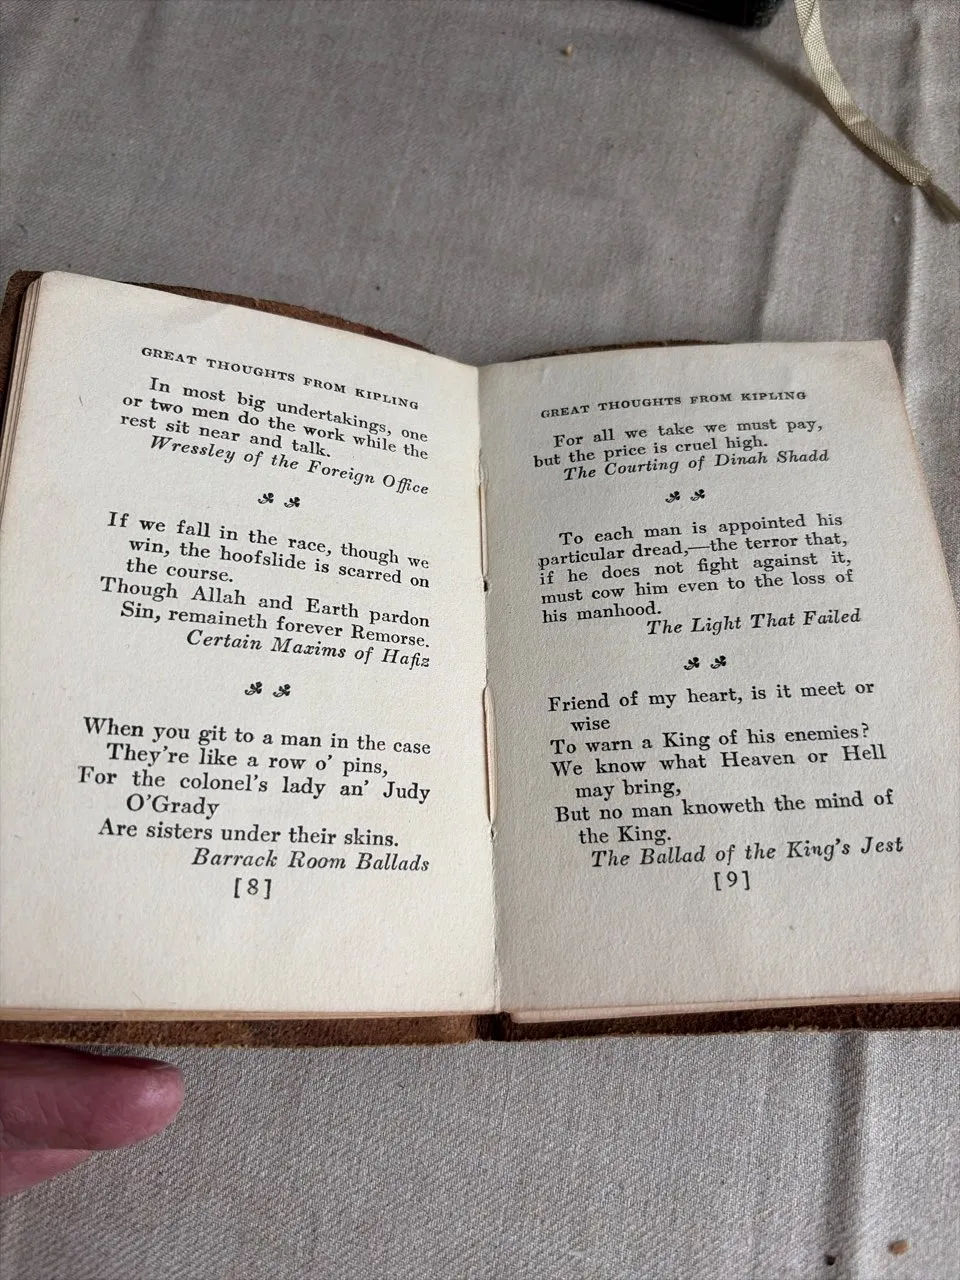 GREAT THOUGHTS FROM KIPLING
In most big undertakings, one
or two men do the work while the
rest sit near and talk.
Wressley of the Foreign Office
If we fall in the race, though we
win, the hoofslide is scarred on
the course.
Though Allah and Earth pardon
Sin, remaineth forever Remorse.
Certain Maxims of Hafiz
When you git to a man in the case
They're like a row o' pins,
For the colonel's lady an' Judy
O'Grady
Are sisters under their skins.
Barrack Room Ballads
[8]
GREAT THOUGHTS FROM KIPLING
For all we take we must pay,
but the price is cruel high.
The Courting of Dinah Shadd
To each man is appointed his
particular dread,—the terror that,
if he does not fight against it,
must cow him even to the loss of
his manhood.
The Light That Failed
Friend of my heart, is it meet or
wise
To warn a King of his enemies?
We know what Heaven or Hell
may bring,
But no man knoweth the mind of
the King.
The Ballad of the King's Jest
[9]